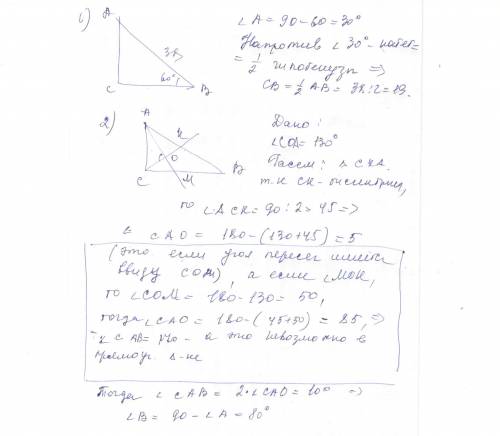 1)
A
38
60°
C
B
∠A = 90 - 60 = 30°
Напротив ∠ 30° - катет =
= 1/2 гипотенузы ⇒
CB = 1/2 AB = 38 : 2 = 19.
2)
A
K
O
C
M
B
Дано:
∠COA = 130°
Рассм: Δ CKA.
т.к CK - биссектриса,
то ∠ACK = 90 : 2 = 45 ⇒
∠ CAO = 180 - (130 + 45) = 5
(это если угол пересеч имеют
ввиду COA), а если ∠MOK,
то ∠COM = 180 - 130 = 50,
тогда ∠CAO = 180 - (45 + 50) = 85, ⇒
∠CAB = 170 - а это невозможно в
прямоуг. Δ-ке
Тогда ∠ CAB = 2 · ∠CAO = 10° ⇒
∠B = 90 - ∠A = 80°